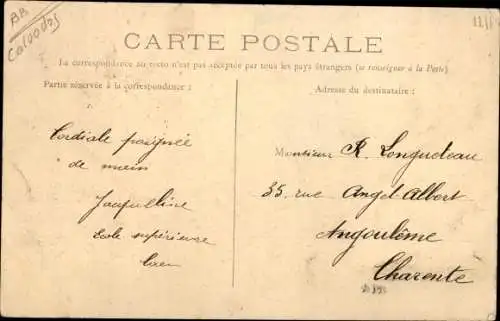 BB
Calvados
CARTE POSTALE
La correspondance au recto n'est pas acceptée par tous les pays étrangers (se renseigner à la Poste)
Partie réservée à la correspondance :
Adresse du destinataire :
Cordiale poignée
de main
Jacqueline
Ecole supérieure
Caen
Monsieur R. Longueteau
35 rue Angel-Albert
Angoulême
Charente